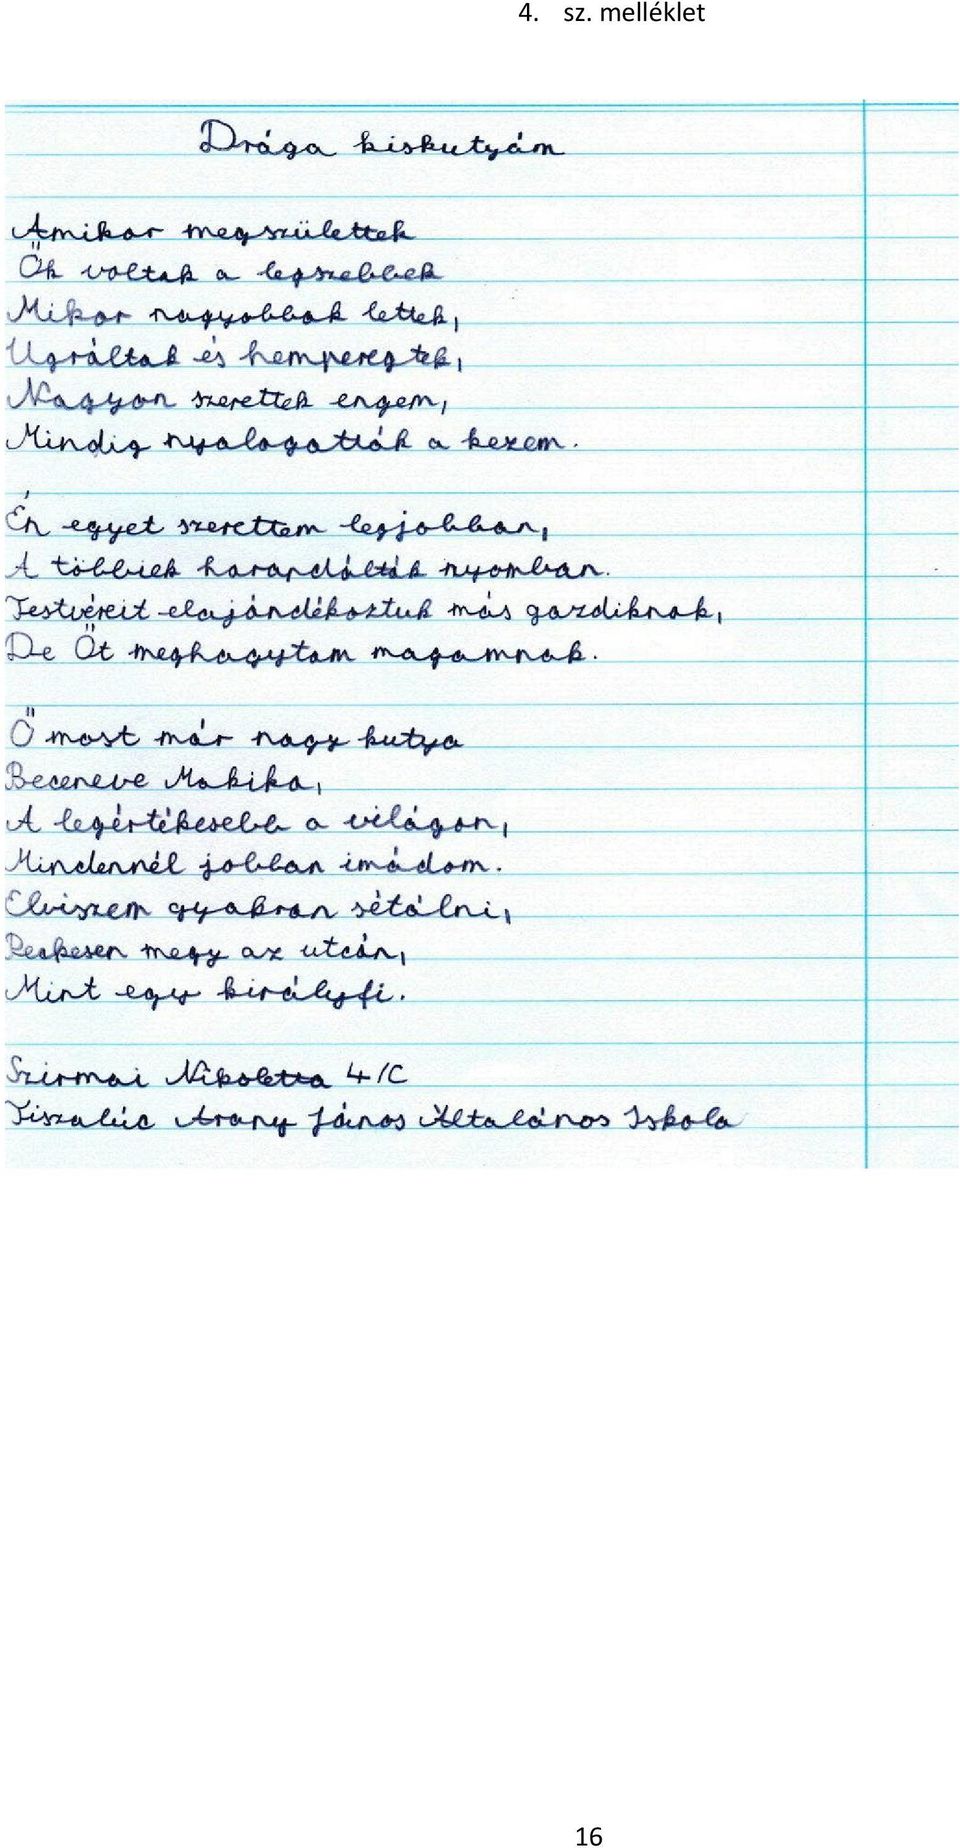 4. sz. melléklet
Drága kiskutyám
Amikor megszülettek
Ők voltak a legszebbek
Mikor nagyobbak lettek,
Ugráltak és hemperegtek,
Nagyon szerettek engem,
Mindig nyalogatták a kezem.
Én egyet szerettem legjobban,
A többiek harapdálták nyomban.
Testvéreit elajándékoztuk más gazdiknak,
De Őt meghagytam magamnak.
Ő most már nagy kutya
Beceneve Makika,
A legértékesebb a világon,
Mindennél jobban imádom.
Elviszem gyakran sétálni,
Peckesen megy az utcán,
Mint egy királyfi.
Szirmai Nikoletta 4/C
Tiszalúc Arany János Általános Iskola
16